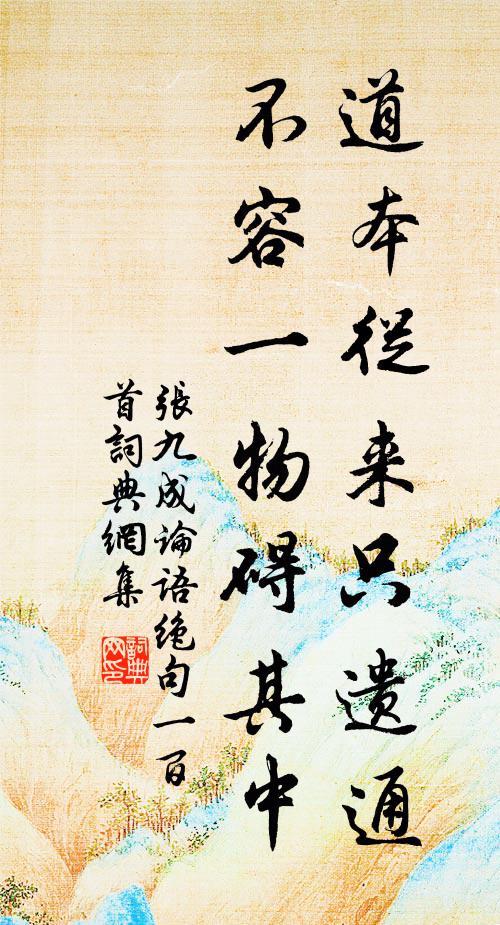 道本從来只遺通
不容一物碍其中
張九成論語绝句一百
首詞典網集
詞典网印